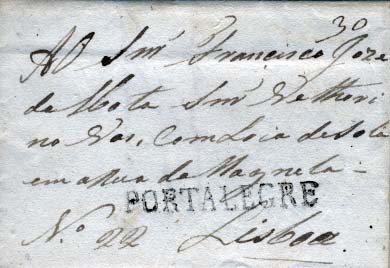 30
Ao Snr Francisco Joze
da Mota Snr
no Vas, Com Loia de Sola
em a Rua da Magnela
PORTALEGRE
No. 22 Lisboa